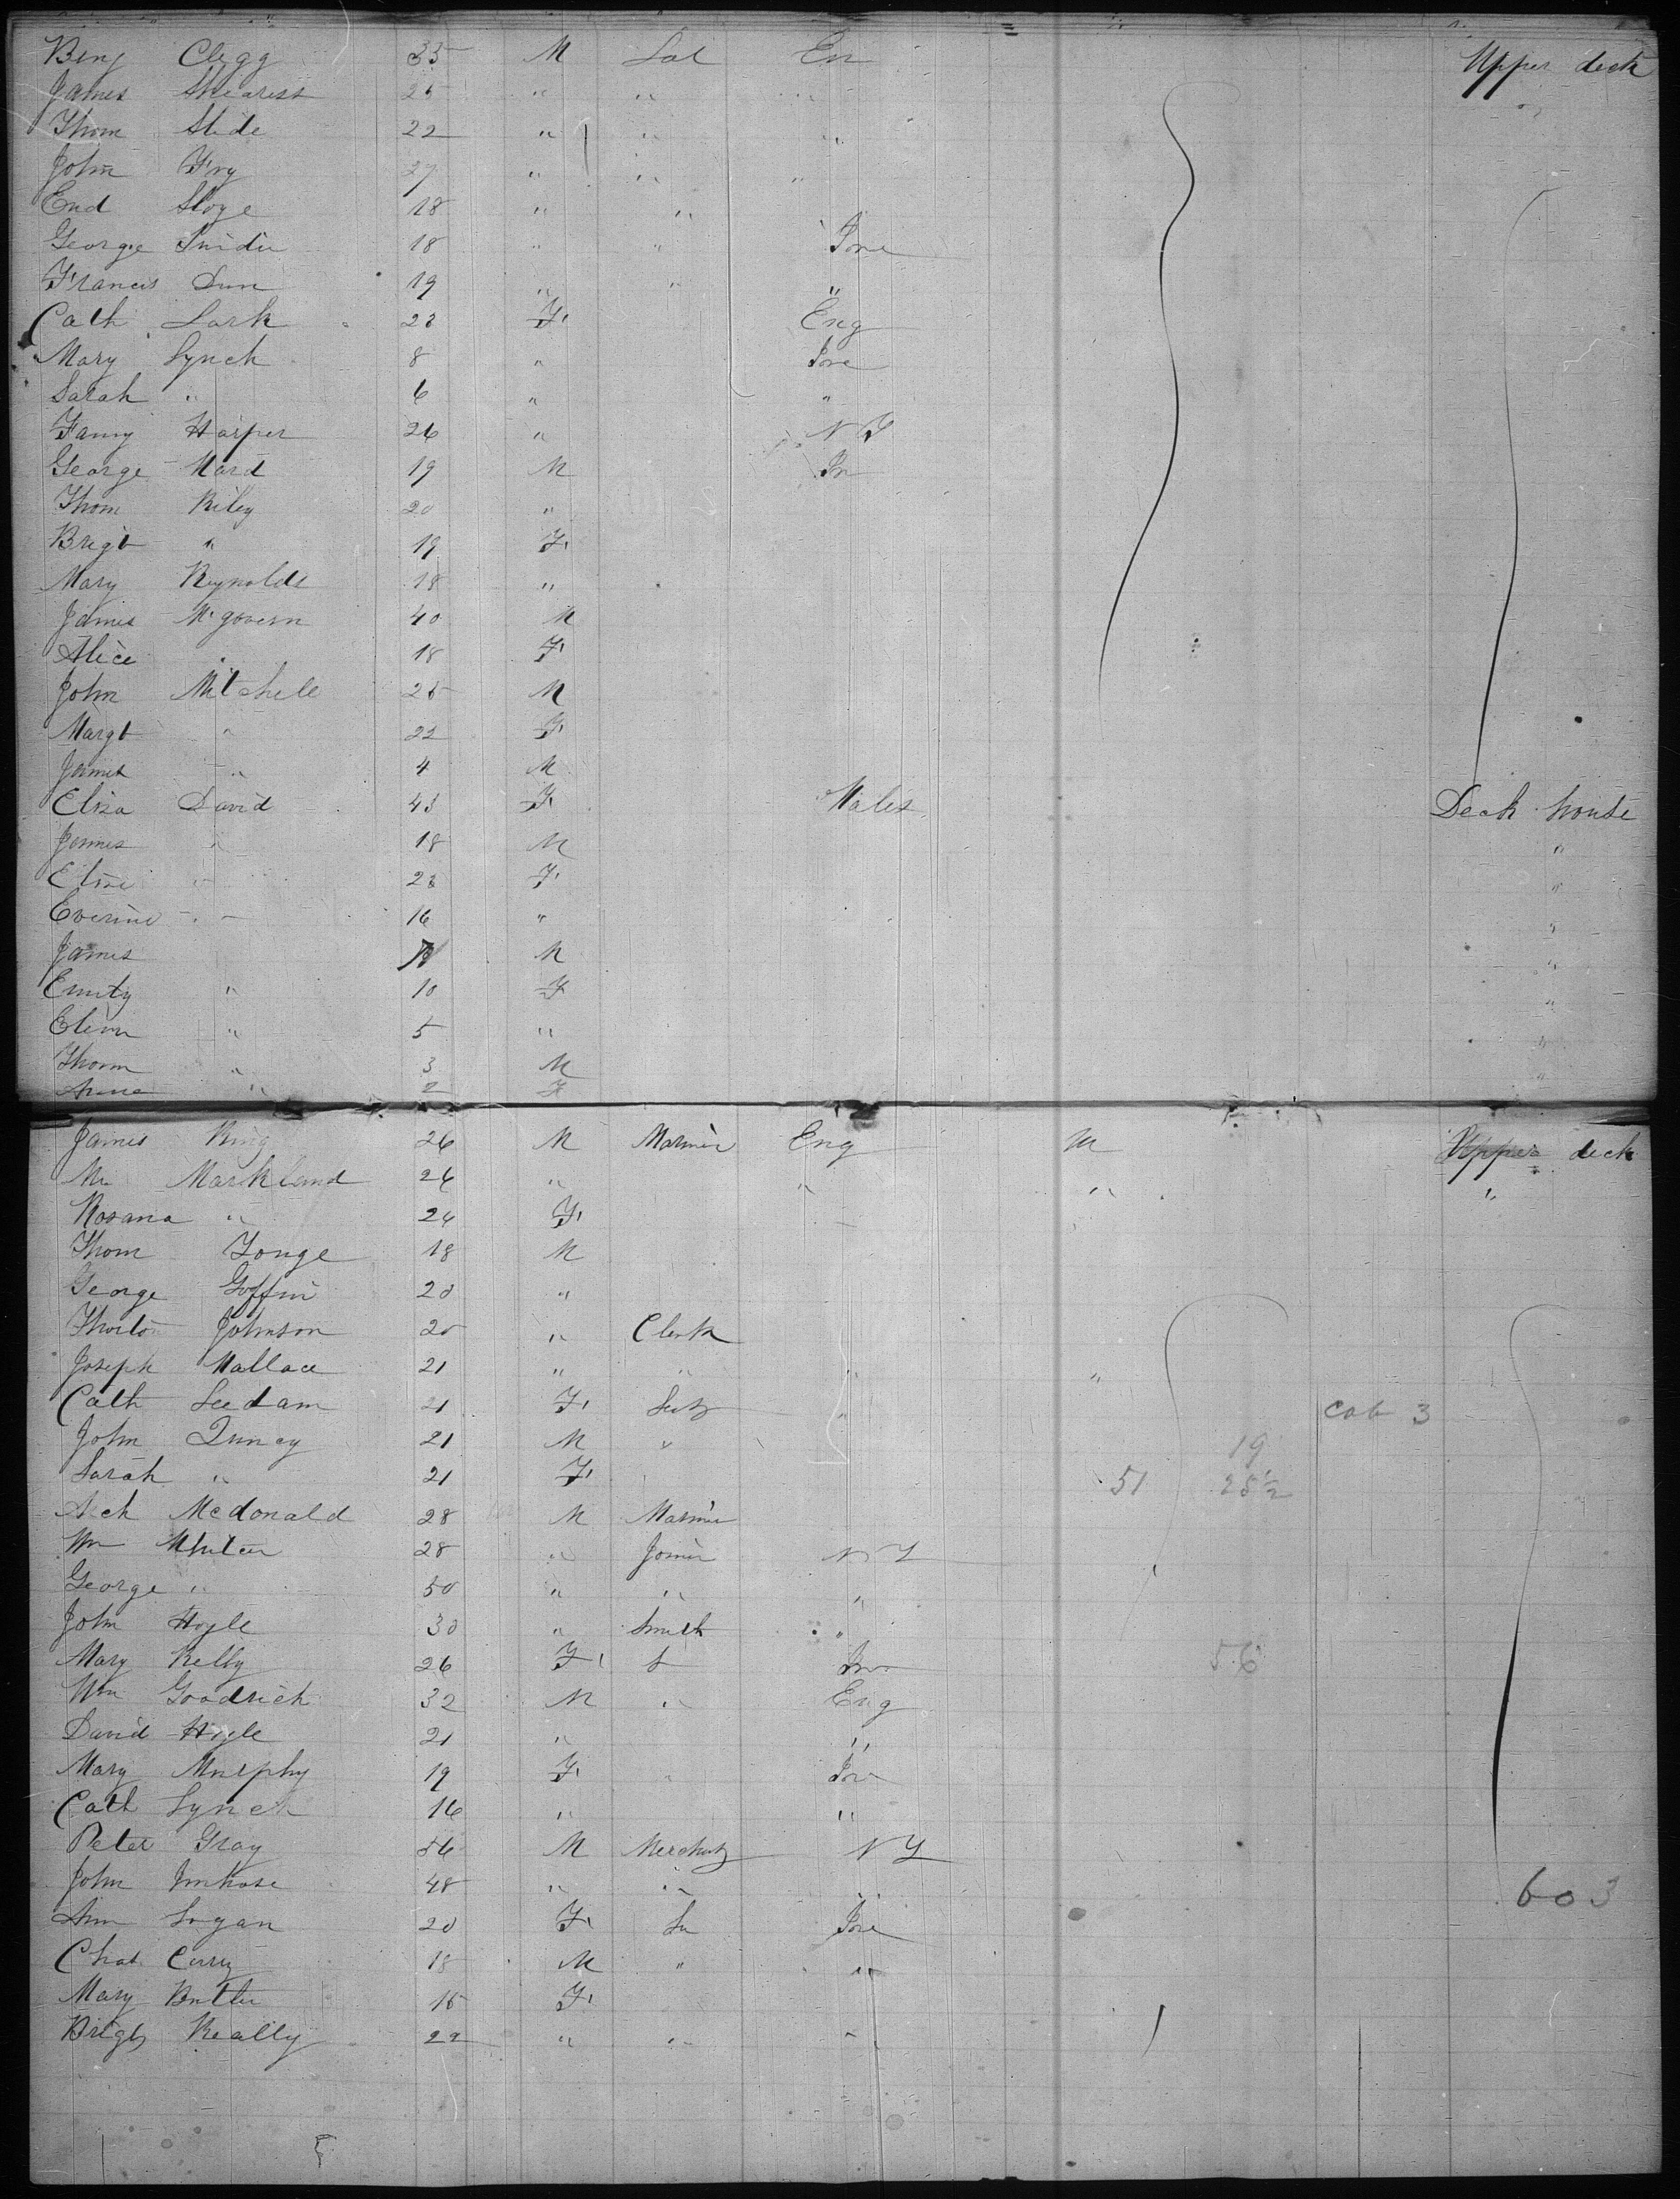 Benj Clegg 35 M Lab En Upper deck
James 25 " " " "
Thom Slide 22 " " "
John Fry 27 " " "
End 18 " "
George 18 " " Ire
Francis Dun 19 " " "
Cath Lark 23 F Eng
Mary Lynch 8 " Ire
Sarah " 6 " "
Fanny Harper 26 " N Y
George Ward 19 M Ir
Thom Riley 20 "
Brigt " 19 F
Mary Reynolds 18 "
James McGovern 40 M
Alice " 18 F
John Mitchell 25 M
Margt " 22 F
James " 4 M
Eliza David 43 F Wales Deck house
James " 18 M "
Elize " 23 F "
16 " "
James M "
Emily " 10 F "
Elenn " 5 " "
Thom " 3 M "
Anna " 2 F
James King 26 M Mariner Eng M Upper deck
Wm Markland 26 " " " "
Rosana " 24 F
Thom Yonge 18 M
George Goffin 20 "
Johnson 20 " Clerk
Joseph Wallace 21 " " " "
Cath Leedam 21 F " Cab 3
John Quncy 21 M " 19
Sarah " 21 F 51 25 1/2
Mcdonald 28 M Mariner
Wm 28 " Joiner N Y
George " 50 " " "
John Hoyle 30 " Smith "
Mary Kelly 26 F S Ire 56
Wm Goodrich 32 M " Eng
David Hoyle 21 " "
Mary Murphy 19 F " Ire
Cath Lynch 16 " "
Peter Gray 56 M Mercht N Y
John 48 " " " 603
Ann Logan 20 F Ire
Chas Curry 18 M " "
Mary Butler 15 F
Brigt Really 22 " " "